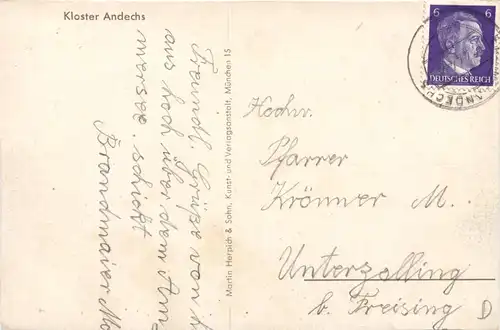 Kloster Andechs
Freundl. Grüße von h
aus hoch über dem Am-
mersee. schickt
Brandmaier Mo
Martin Herpich & Sohn, Kunst- und Verlagsanstalt, München 15
6 6
DEUTSCHES REICH
ANDECHS
Hochw.
Pfarrer
Krönner M.
Unterzolling
b. Freising
D